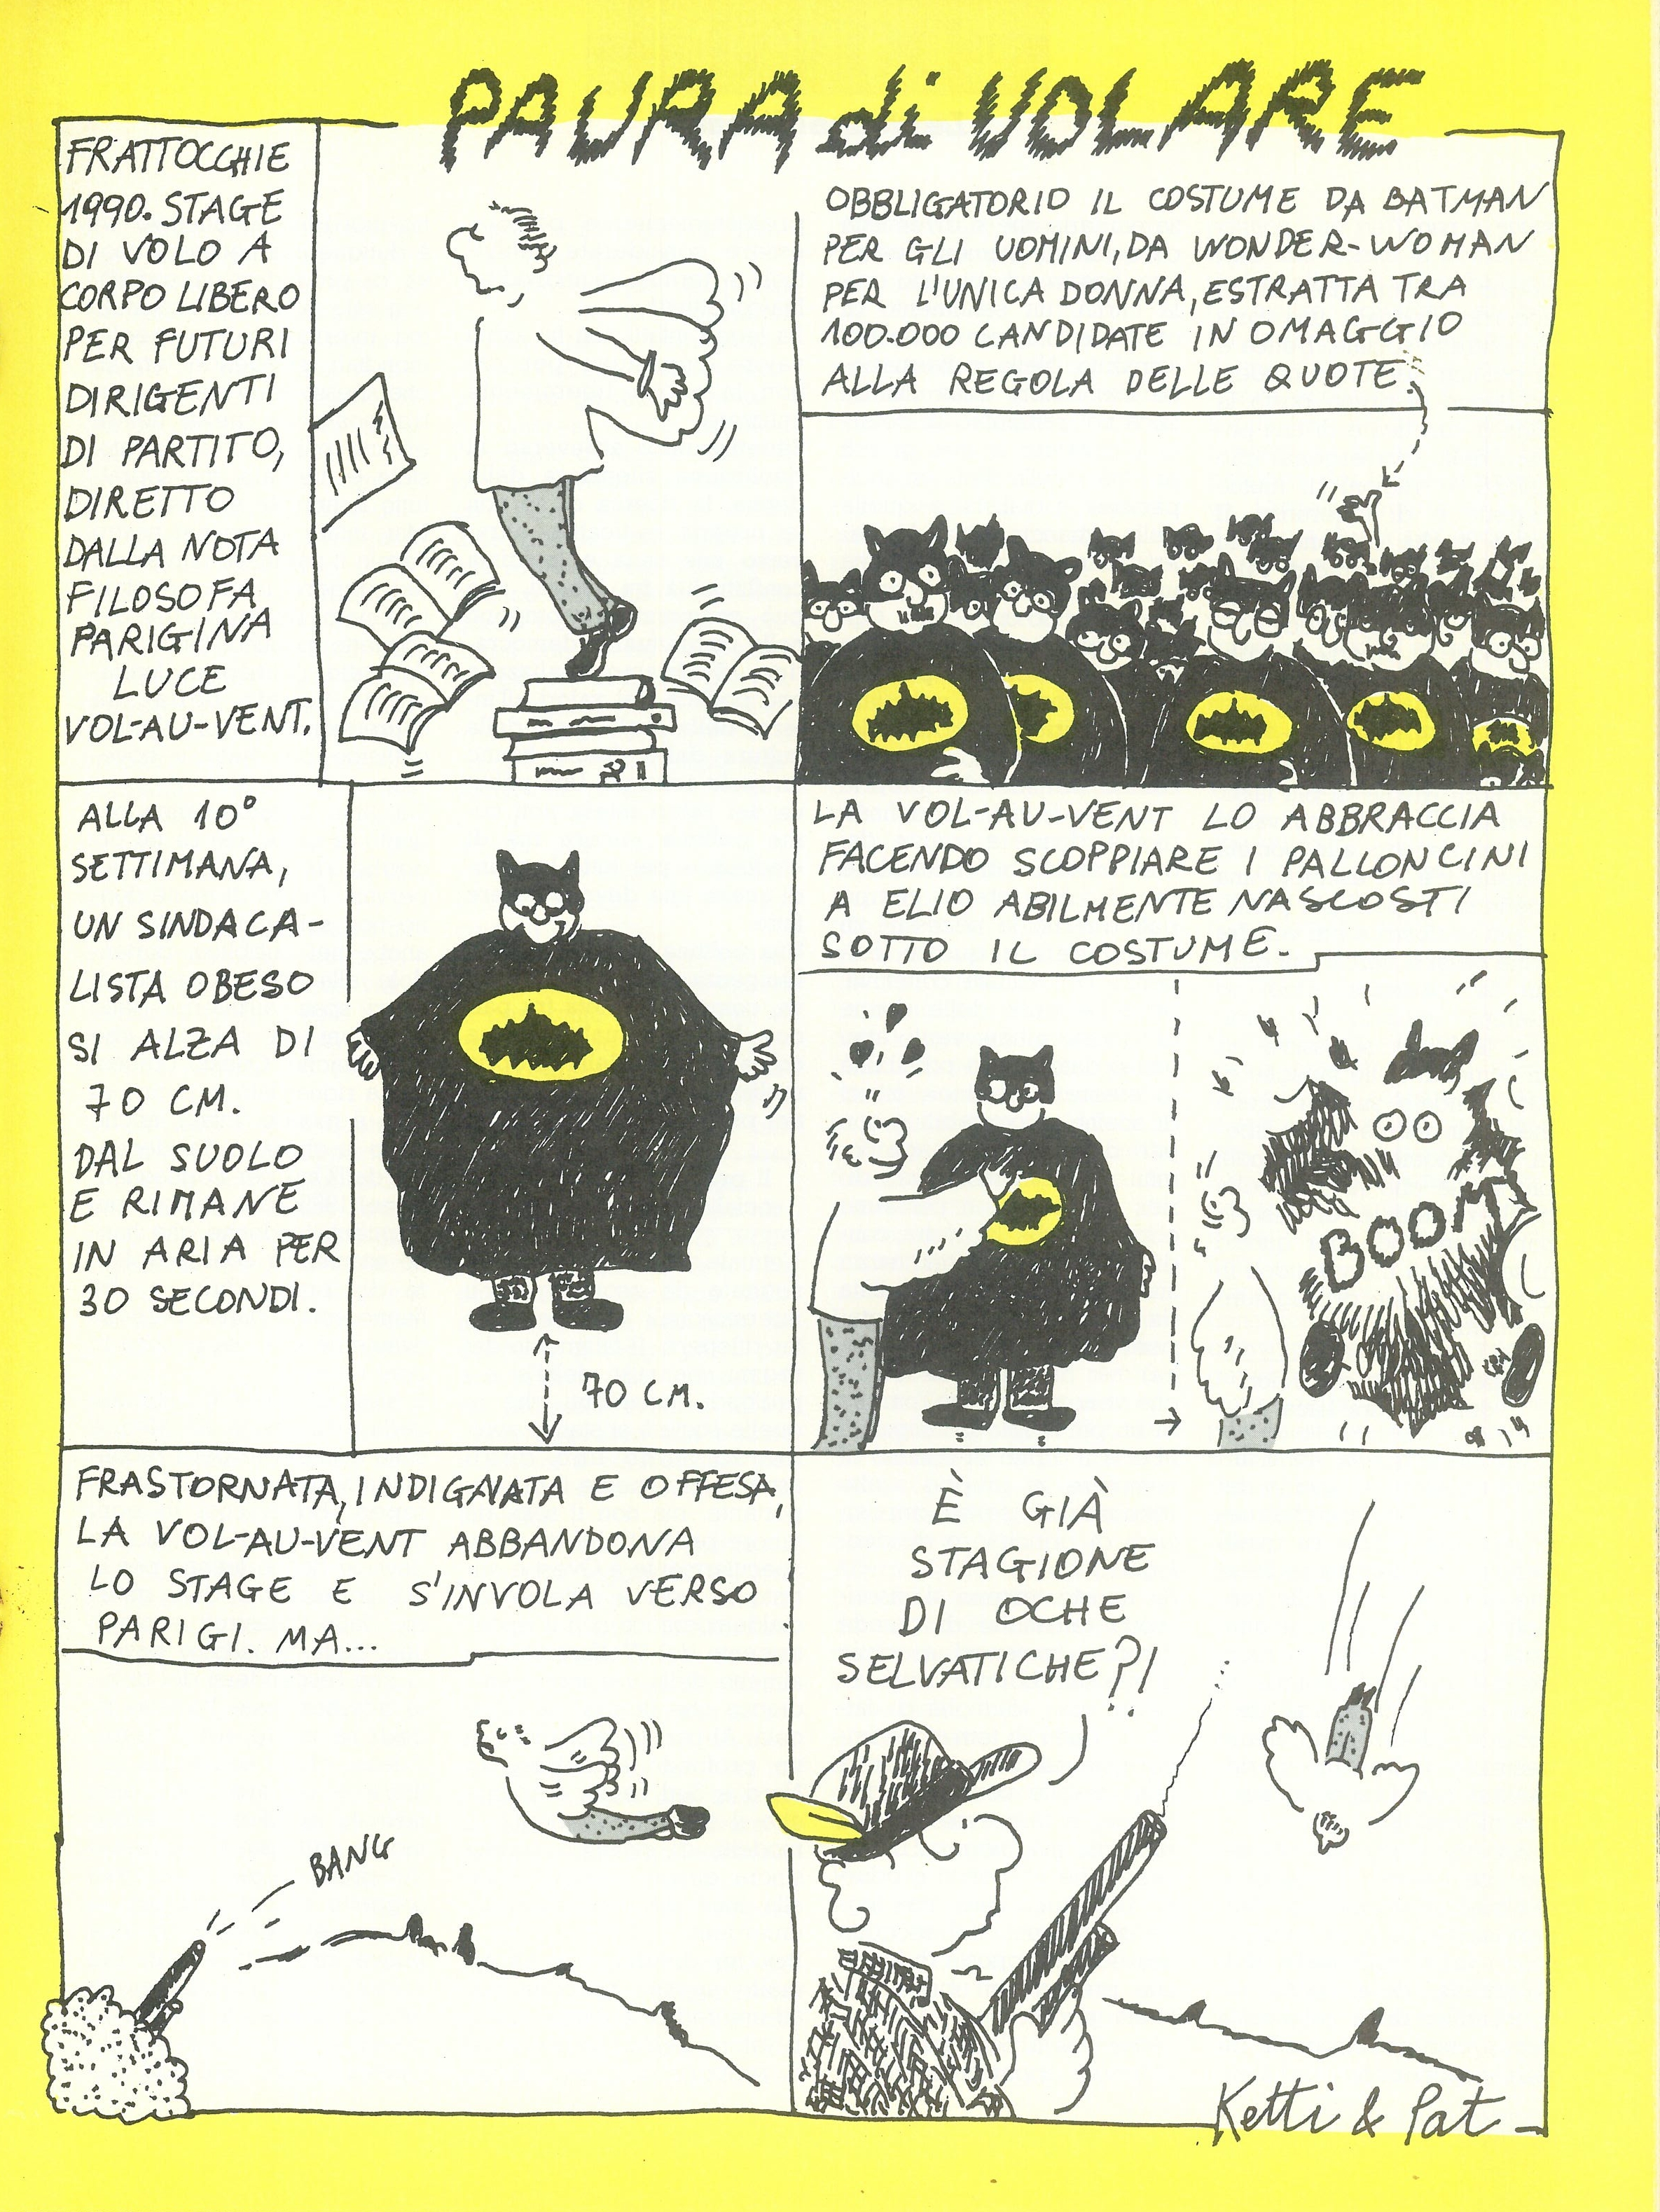 PAURA di VOLARE
FRATTOCCHIE
1990. STAGE
DI VOLO A
CORPO LIBERO
PER FUTURI
DIRIGENTI
DI PARTITO,
DIRETTO
DALLA NOTA
FILOSOFA
PARIGINA
LUCE
VOL-AU-VENT.
OBBLIGATORIO IL COSTUME DA BATMAN
PER GLI UOMINI, DA WONDER-WOMAN
PER L'UNICA DONNA, ESTRATTA TRA
100.000 CANDIDATE IN OMAGGIO
ALLA REGOLA DELLE QUOTE.
ALLA 10°
SETTIMANA,
UN SINDACA-
LISTA OBESO
SI ALZA DI
70 CM.
DAL SUOLO
E RIMANE
IN ARIA PER
30 SECONDI.
70 CM.
LA VOL-AU-VENT LO ABBRACCIA
FACENDO SCOPPIARE I PALLONCINI
A ELIO ABILMENTE NASCOSTI
SOTTO IL COSTUME.
BOOM
FRASTORNATA, INDIGNATA E OFFESA,
LA VOL-AU-VENT ABBANDONA
LO STAGE E S'INVOLA VERSO
PARIGI. MA...
BANG
È GIÀ
STAGIONE
DI OCHE
SELVATICHE?!
Ketti & Pat